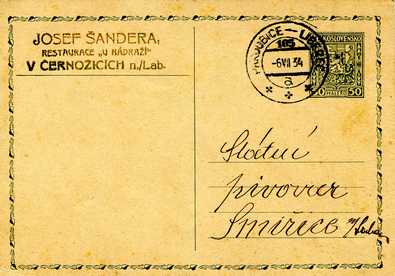 JOSEF ŠANDERA,
RESTAURACE „U NÁDRAŽÍ"
V ČERNOŽICÍCH n./Lab.
PARDUBICE — LIBEREC
185
-6.VII 34
a
ČESKOSLOVENSKO
50 50
Státní
pivovar
Smiřice